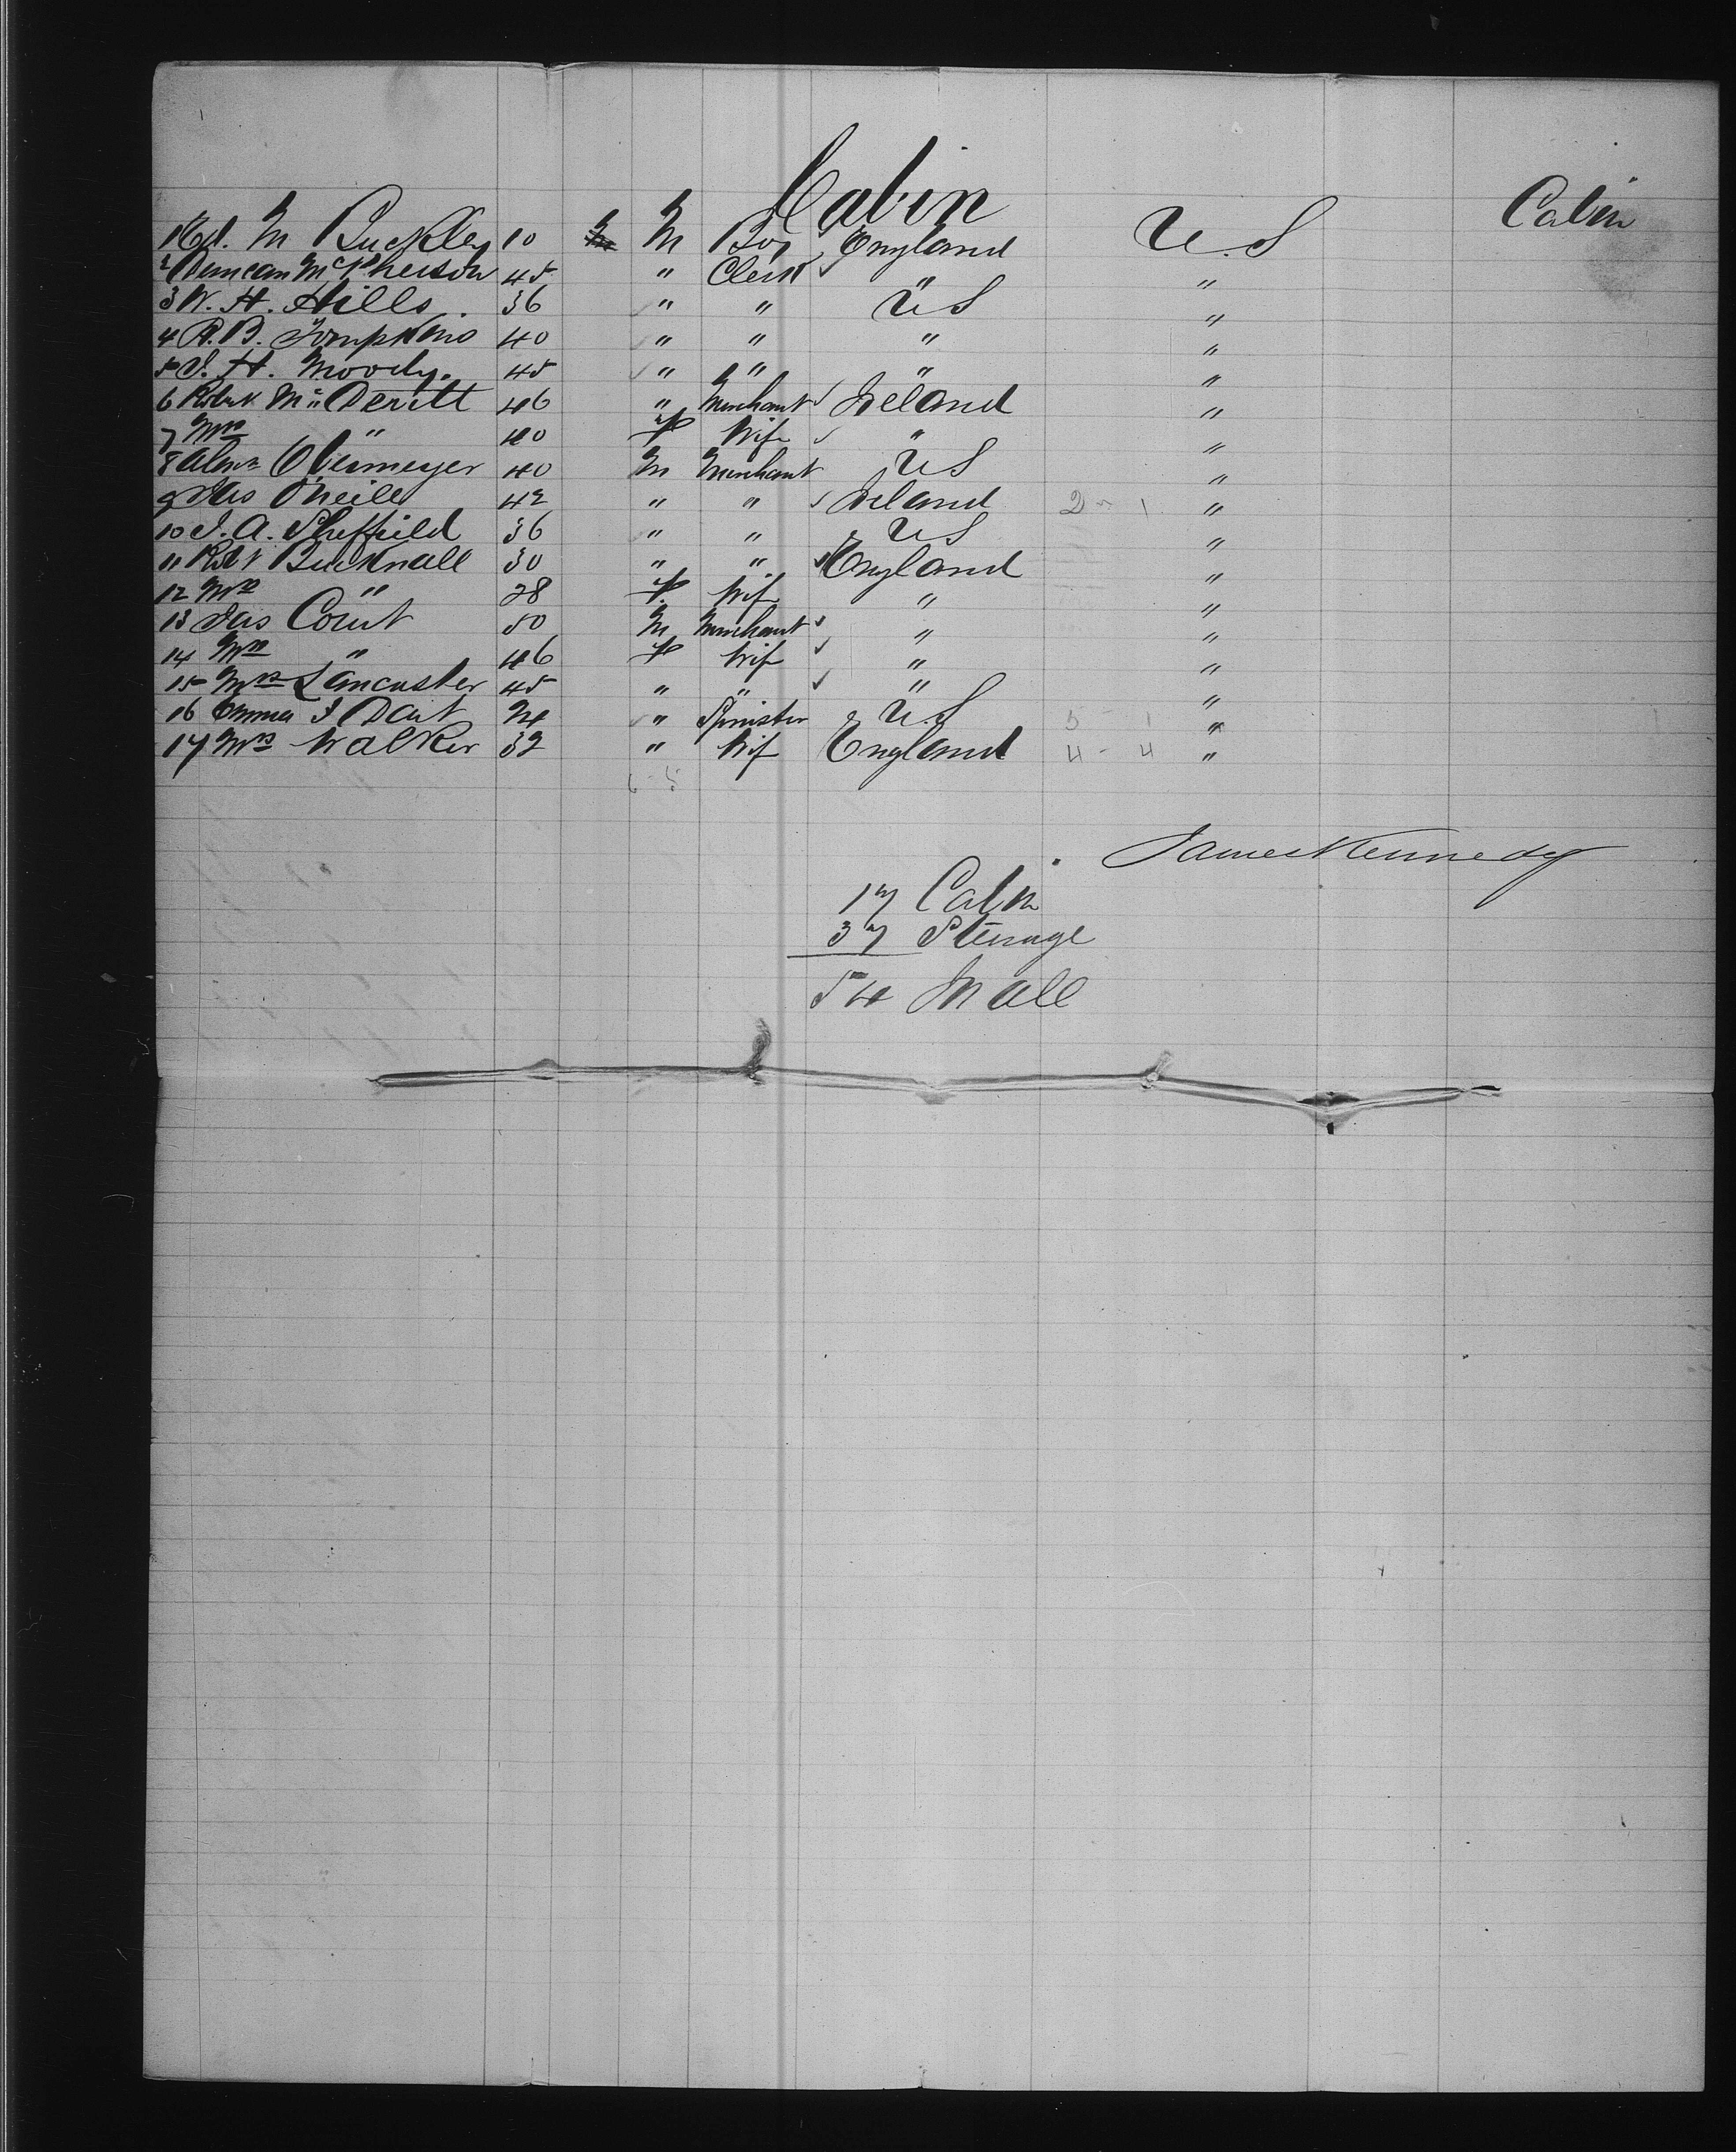 Cabin
1 Ed. M Buckley 10 M Boy England U.S Cabin
2 Duncan McPherson 45 " Clerk " "
3 W. H. Hills 36 " " U S "
4 R. B. Tompkins 40 " " " "
5 S. H. Moody. 45 " " " "
6 Robert Mc Deritt 46 " Merchant Ireland "
7 Mrs " 40 F Wife " "
8 Obermeyer 40 M Merchant U S "
9 Jas O'Neill 42 " " Ireland 2 - 1 "
10 J. A. Sheffield 36 " " U S "
11 Robt Bucknall 30 " " England "
12 Mrs " 28 F. Wif " "
13 Jas Court 50 M Merchant " "
14 Mrs " 46 F Wif " "
15 Mrs Lancaster 45 " " " "
16 Emma J Dart 24 " Spinister U.S 5 - 1 "
17 Mrs Walker 32 " Wif England 4 - 4 "
6 - 5
James Kennedy
17 Cabin
37 Steerage
54 In all